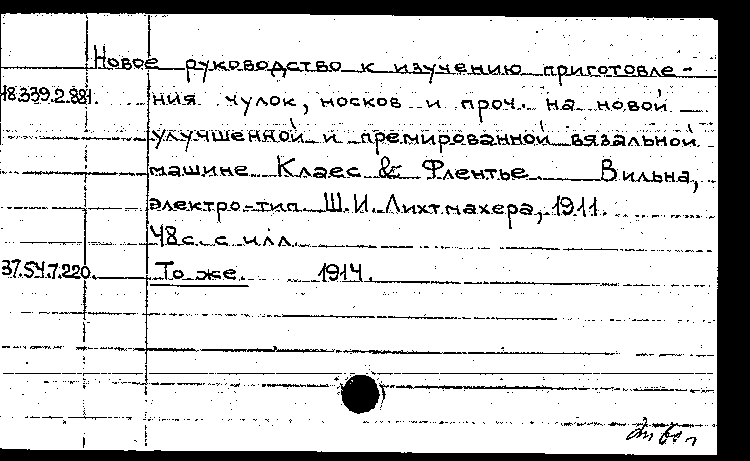 Новое руководство к изучению приготовле-
18.339.2.881. ния чулок, носков и проч. на новой
улучшенной и премированной вязальной
машине Клаес & Флентье. Вильна,
электро-тип. Ш.И. Лихтмахера, 1911.
48 с. с илл.
37.54.7.220. То же. 1914.